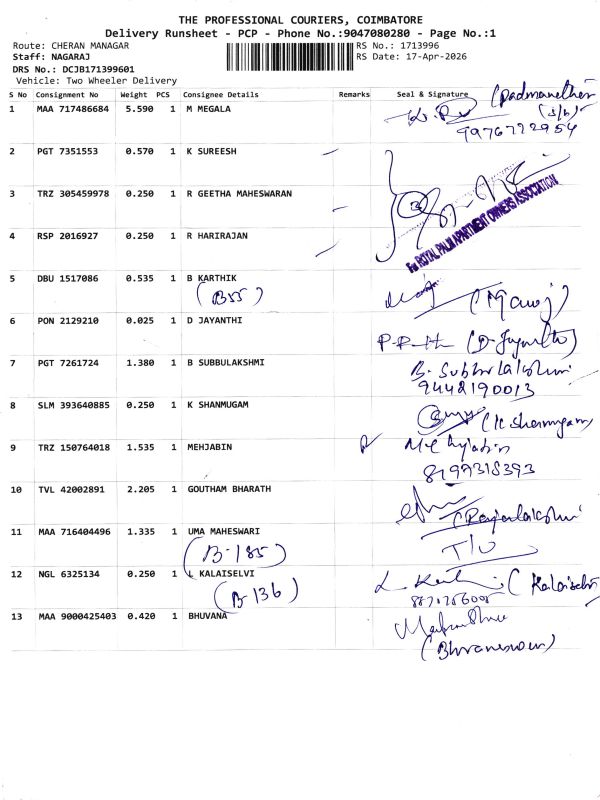 THE PROFESSIONAL COURIERS, COIMBATORE
Delivery Runsheet - PCP - Phone No.:9047080280 - Page No.:1
Route: CHERAN MANAGAR RS No.: 1713996
Staff: NAGARAJ RS Date: 17-Apr-2026
DRS No.: DCJB171399601
Vehicle: Two Wheeler Delivery
S No Consignment No Weight PCS Consignee Details Remarks Seal & Signature
1 MAA 717486684 5.590 1 M MEGALA
9976722954
2 PGT 7351553 0.570 1 K SUREESH
3 TRZ 305459978 0.250 1 R GEETHA MAHESWARAN
For ROYAL PALM APARTMENT OWNERS ASSOCIATION
4 RSP 2016927 0.250 1 R HARIRAJAN
5 DBU 1517086 0.535 1 B KARTHIK
(B55) (Manoj)
6 PON 2129210 0.025 1 D JAYANTHI
7 PGT 7261724 1.380 1 B SUBBULAKSHMI B. Subbulakshmi
9442190013
8 SLM 393640885 0.250 1 K SHANMUGAM
(K Shanmugam)
9 TRZ 150764018 1.535 1 MEHJABIN
8199318393
10 TVL 42002891 2.205 1 GOUTHAM BHARATH
(Rajalakshmi
11 MAA 716404496 1.335 1 UMA MAHESWARI
(B-185)
12 NGL 6325134 0.250 1 L KALAISELVI
(B-136)
13 MAA 9000425403 0.420 1 BHUVANA
(Bhuvaneswari)